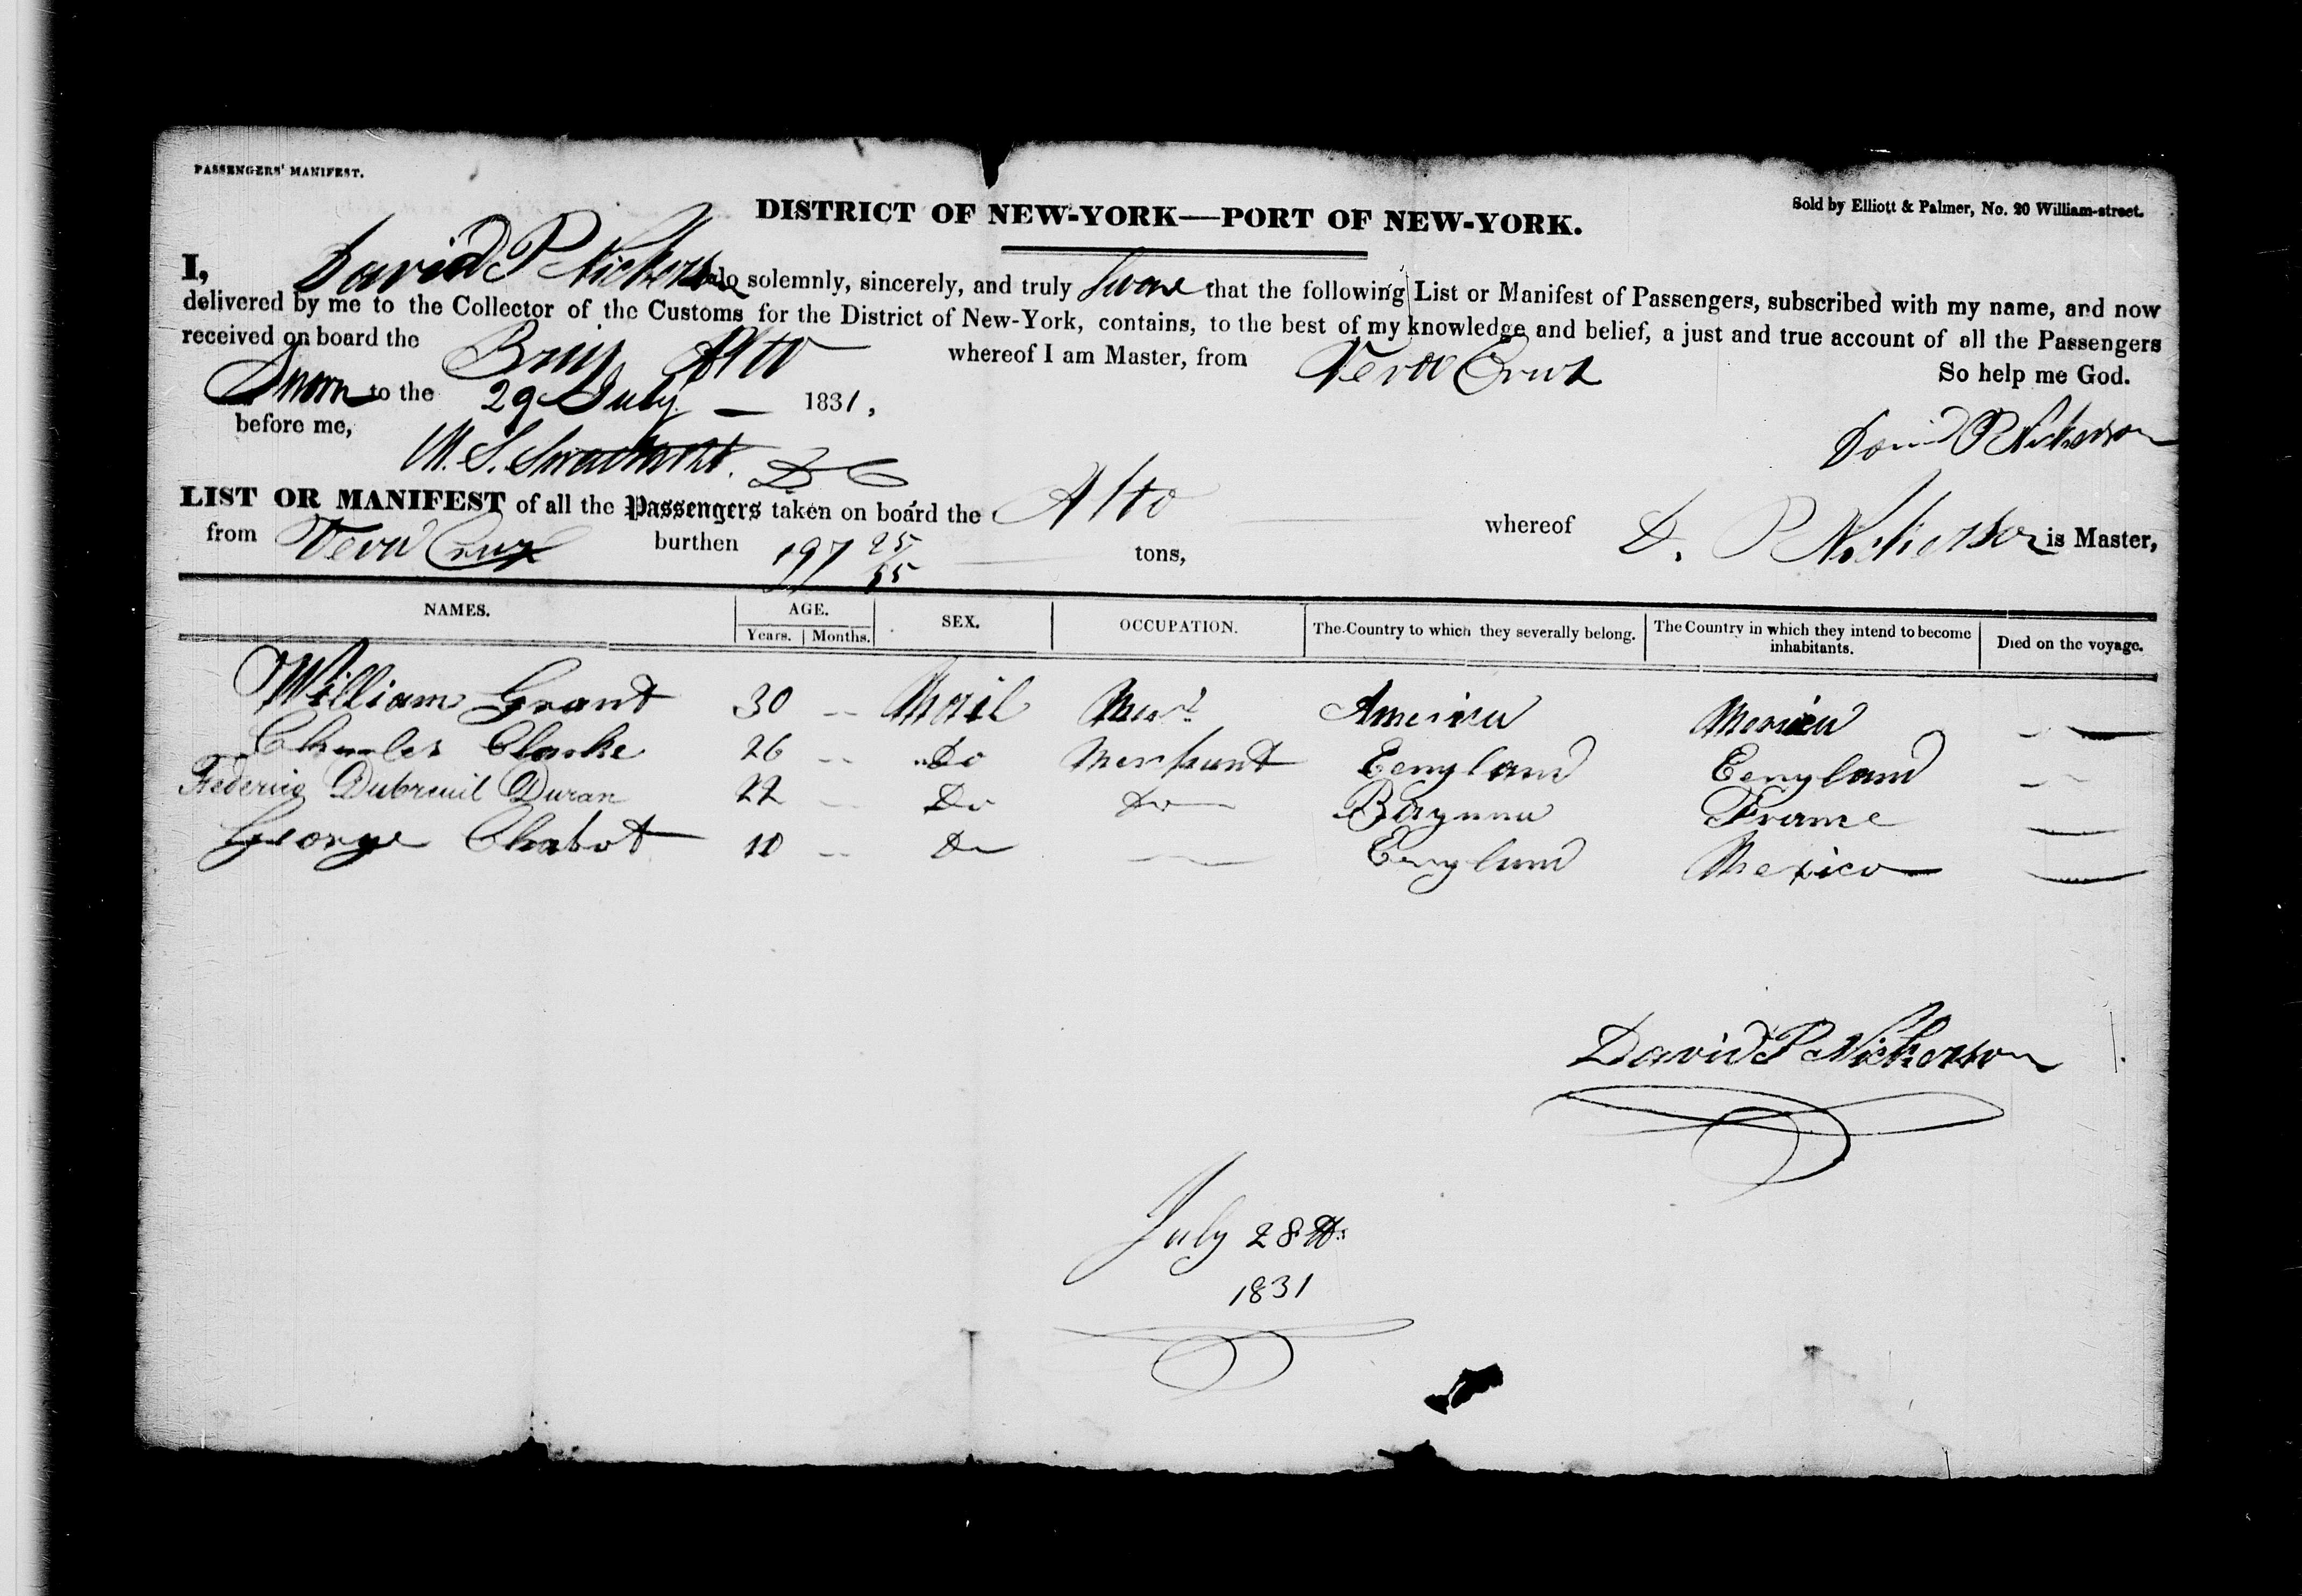 PASSENGERS' MANIFEST.
Sold by Elliott & Palmer, No. 20 William-street.
DISTRICT OF NEW-YORK—PORT OF NEW-YORK.
I, David P Nickerson do solemnly, sincerely, and truly Swear that the following List or Manifest of Passengers, subscribed with my name, and now
delivered by me to the Collector of the Customs for the District of New-York, contains, to the best of my knowledge and belief, a just and true account of all the Passengers
received on board the Brig Alto whereof I am Master, from Vera Cruz
So help me God.
Sworn to the 29 July — 1831,
before me,
David P Nickerson
M. S. Swartwout. D C
LIST OR MANIFEST of all the Passengers taken on board the Alto whereof D. P Nickerson is Master,
from Vera Cruz burthen 197 25/95 tons,
NAMES. AGE. SEX. OCCUPATION. The Country to which they severally belong. The Country in which they intend to become inhabitants. Died on the voyage.
Years. Months.
William Grant 30 -- Mail America Mexico —
Charles Clarke 26 -- Do Merchant Eengland Eengland --
Federico Dubreuil Duran 22 -- Do Do France —
George Chabot 10 -- Do — Eengland Mexico —
David P Nickerson
July 28th
1831